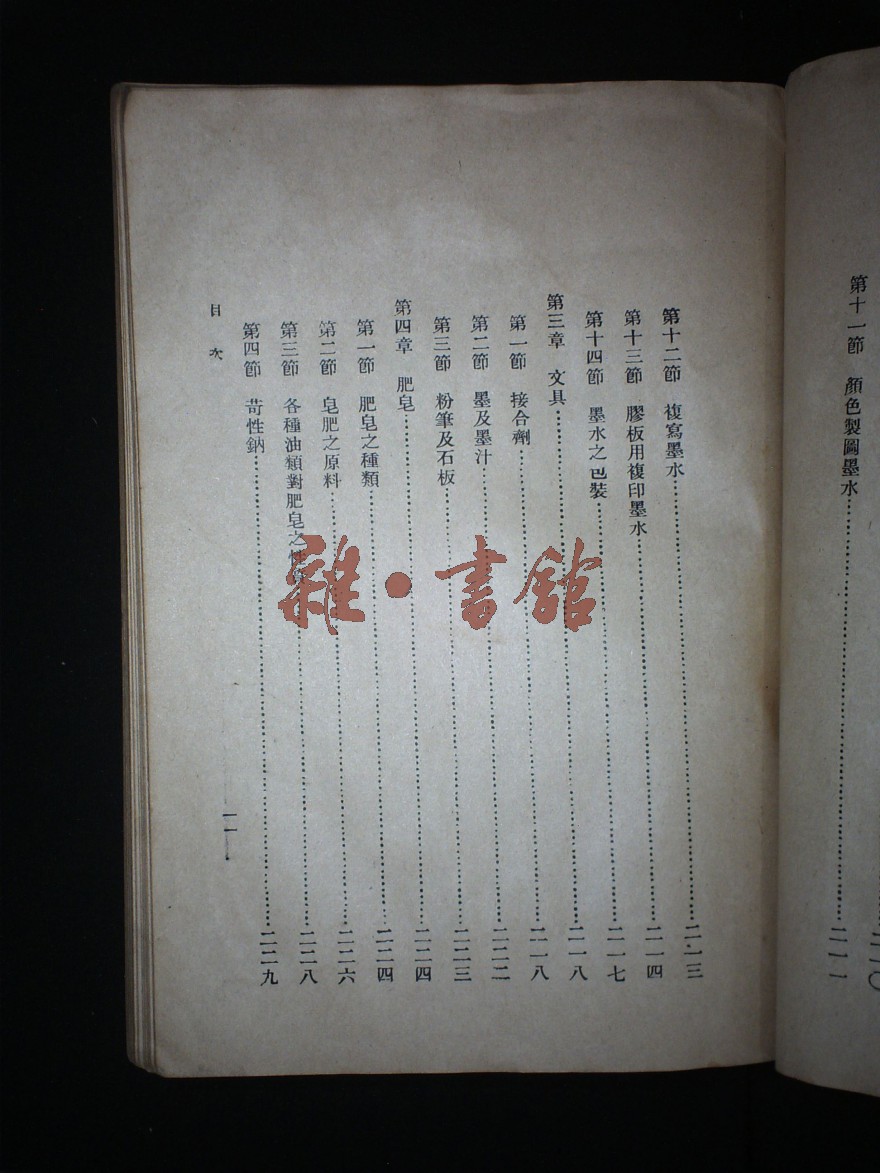 第十一節 顏色製圖墨水……二一一
第十二節 複寫墨水……二一三
第十三節 膠板用複印墨水……二一四
第十四節 墨水之包裝……二一七
第三章 文具……二一八
第一節 接合劑……二一八
第二節 墨及墨汁……二二二
第三節 粉筆及石板……二二三
第四章 肥皂……二二四
第一節 肥皂之種類……二二四
第二節 皂肥之原料……二二六
第三節 各種油類對肥皂之性……二二八
第四節 苛性鈉……二二九
目次
一一
雜·書館